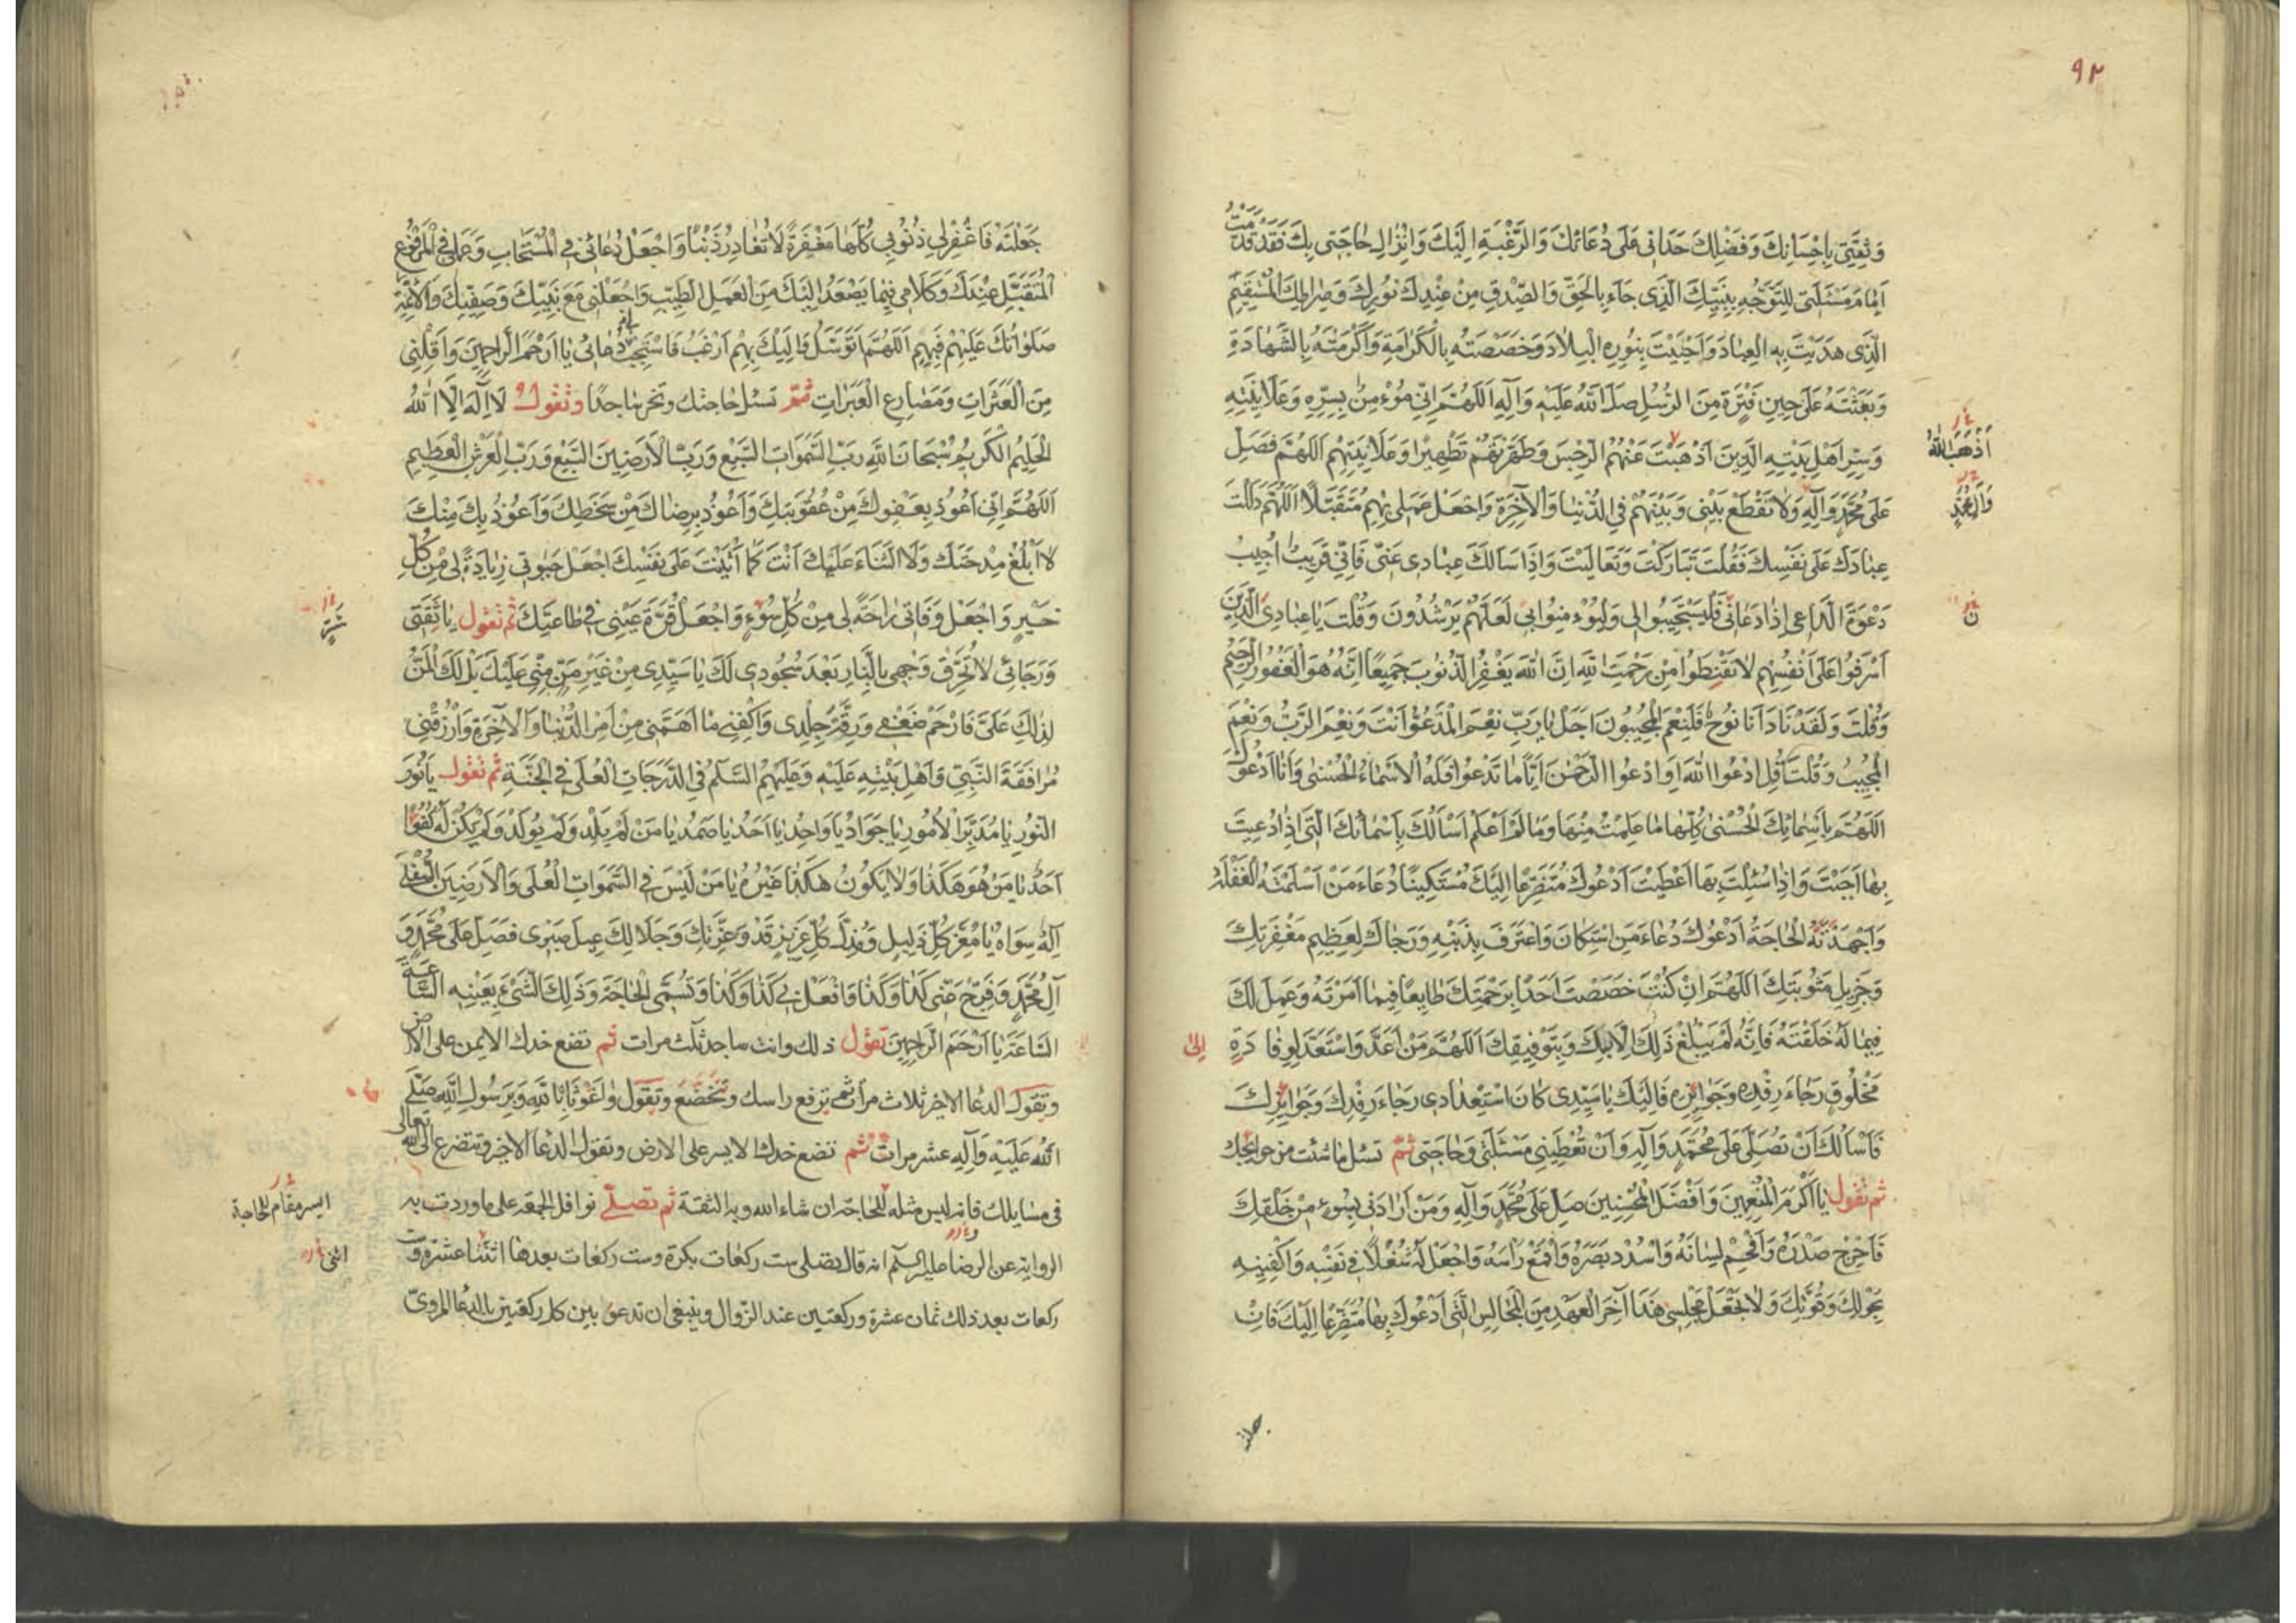 ٩٢
وَثِقَتِي بِاِحْسَانِكَ وَفَضْلِكَ حَدَانِي عَلَى دُعَائِكَ وَالرَّغْبَةِ اِلَيْكَ وَاِنْزَالِ حَاجَتِي بِكَ فَقَدْ قَدَّمْتُ
اَمَامَ مَسْئَلَتِي التَّوَجُّهَ بِنَبِيِّكَ الَّذِي جَاءَ بِالْحَقِّ وَالصِّدْقِ مِنْ عِنْدِكَ نُورِكَ وَصِرَاطِكَ الْمُسْتَقِيمِ
الَّذِي هَدَيْتَ بِهِ الْعِبَادَ وَاَحْيَيْتَ بِنُورِهِ الْبِلَادَ وَخَصَصْتَهُ بِالْكَرَامَةِ وَاَكْرَمْتَهُ بِالشَّهَادَةِ
وَبَعَثْتَهُ عَلَى حِينِ فَتْرَةٍ مِنَ الرُّسُلِ صَلَّى اللهُ عَلَيْهِ وَآلِهِ اَللّٰهُمَّ اِنِّي مُؤْمِنٌ بِسِرِّهِ وَعَلَانِيَتِهِ
وَسِرِّ اَهْلِ بَيْتِهِ الَّذِينَ اَذْهَبْتَ عَنْهُمُ الرِّجْسَ وَطَهَّرْتَهُمْ تَطْهِيرًا وَعَلَانِيَتِهِمْ اَللّٰهُمَّ فَصَلِّ
اَذْهَبَ اللهُ
عَلَى مُحَمَّدٍ وَآلِهِ وَلَا تَقْطَعْ بَيْنِي وَبَيْنَهُمْ فِي الدُّنْيَا وَالْآخِرَةِ وَاجْعَلْ عَمَلِي بِهِمْ مُتَقَبَّلًا اَللّٰهُمَّ دَلَلْتَ
وَآلِ مُحَمَّدٍ
عِبَادَكَ عَلَى نَفْسِكَ فَقُلْتَ تَبَارَكْتَ وَتَعَالَيْتَ وَاِذَا سَاَلَكَ عِبَادِي عَنِّي فَاِنِّي قَرِيبٌ اُجِيبُ
دَعْوَةَ الدَّاعِي اِذَا دَعَانِي فَلْيَسْتَجِيبُوا لِي وَلْيُؤْمِنُوا بِي لَعَلَّهُمْ يَرْشُدُونَ وَقُلْتَ يَا عِبَادِيَ الَّذِينَ
ن
اَسْرَفُوا عَلَى اَنْفُسِهِمْ لَا تَقْنَطُوا مِنْ رَحْمَتِ اللهِ اِنَّ اللهَ يَغْفِرُ الذُّنُوبَ جَمِيعًا اِنَّهُ هُوَ الْغَفُورُ الرَّحِيمُ
وَقُلْتَ وَلَقَدْ نَادَانَا نُوحٌ فَلَنِعْمَ الْمُجِيبُونَ اَجَلْ يَا رَبِّ نِعْمَ الْمَدْعُوُّ اَنْتَ وَنِعْمَ الرَّبُّ وَنِعْمَ
الْمُجِيبُ وَقُلْتَ قُلِ ادْعُوا اللهَ اَوِ ادْعُوا الرَّحْمٰنَ اَيًّا مَا تَدْعُوا فَلَهُ الْاَسْمَاءُ الْحُسْنَى وَاَنَا اَدْعُوكَ
اَللّٰهُمَّ بِاَسْمَائِكَ الْحُسْنَى كُلِّهَا مَا عَلِمْتُ مِنْهَا وَمَا لَمْ اَعْلَمْ اَسْاَلُكَ بِاَسْمَائِكَ الَّتِي اِذَا دُعِيتَ
بِهَا اَجَبْتَ وَاِذَا سُئِلْتَ بِهَا اَعْطَيْتَ اَدْعُوكَ مُتَضَرِّعًا اِلَيْكَ مُسْتَكِينًا دُعَاءَ مَنْ اَسْلَمَتْهُ الْغَفْلَةُ
وَاَجْهَدَتْهُ الْحَاجَةُ اَدْعُوكَ دُعَاءَ مَنِ اسْتَكَانَ وَاعْتَرَفَ بِذَنْبِهِ وَرَجَاكَ لِعَظِيمِ مَغْفِرَتِكَ
وَجَزِيلِ مَثُوبَتِكَ اَللّٰهُمَّ اِنْ كُنْتَ خَصَصْتَ اَحَدًا بِرَحْمَتِكَ طَائِعًا فِيمَا اَمَرْتَهُ وَعَمِلَ لَكَ
فِيمَا لَهُ خَلَقْتَهُ فَاِنَّهُ لَمْ يَبْلُغْ ذٰلِكَ اِلَّا بِكَ وَبِتَوْفِيقِكَ اَللّٰهُمَّ مَنْ اَعَدَّ وَاسْتَعَدَّ لِوِفَادَةٍ اِلٰى
مَخْلُوقٍ رَجَاءَ رِفْدِهِ وَجَوَائِزِهِ فَاِلَيْكَ يَا سَيِّدِي كَانَ اسْتِعْدَادِي رَجَاءَ رِفْدِكَ وَجَوَائِزِكَ
فَاَسْاَلُكَ اَنْ تُصَلِّيَ عَلَى مُحَمَّدٍ وَآلِهِ وَاَنْ تُعْطِيَنِي مَسْئَلَتِي وَحَاجَتِي ثُمَّ تسئل ما شئت من حوائجك
ثم تقول يَا اَكْرَمَ الْمُنْعِمِينَ وَاَفْضَلَ الْمُحْسِنِينَ صَلِّ عَلَى مُحَمَّدٍ وَآلِهِ وَمَنْ اَرَادَنِي بِسُوءٍ مِنْ خَلْقِكَ
فَاَحْرِجْ صَدْرَهُ وَاَفْحِمْ لِسَانَهُ وَاسْدُدْ بَصَرَهُ وَاقْمَعْ رَاْسَهُ وَاجْعَلْ لَهُ شُغْلًا فِي نَفْسِهِ وَاكْفِنِيهِ
بِحَوْلِكَ وَقُوَّتِكَ وَلَا تَجْعَلْ مَجْلِسِي هٰذَا آخِرَ الْعَهْدِ مِنَ الْمَجَالِسِ الَّتِي اَدْعُوكَ بِهَا مُتَضَرِّعًا اِلَيْكَ فَاِنْ
جعلته
جَعَلْتَهُ فَاغْفِرْ لِي ذُنُوبِي كُلَّهَا مَغْفِرَةً لَا تُغَادِرُ ذَنْبًا وَاجْعَلْ دُعَائِي فِي الْمُسْتَجَابِ وَعَمَلِي فِي الْمَرْفُوعِ
الْمُتَقَبَّلِ عِنْدَكَ وَكَلَامِي فِيمَا يَصْعَدُ اِلَيْكَ مِنَ الْعَمَلِ الطَّيِّبِ وَاجْعَلْنِي مَعَ نَبِيِّكَ وَصَفِيِّكَ وَالْاَئِمَّةِ
صَلَوَاتُكَ عَلَيْهِمْ فَبِهِمْ اَللّٰهُمَّ اَتَوَسَّلُ وَاِلَيْكَ بِهِمْ اَرْغَبُ فَاسْتَجِبْ دُعَائِي يَا اَرْحَمَ الرَّاحِمِينَ وَاَقِلْنِي
مِنَ الْعَثَرَاتِ وَمَصَارِعِ الْعَبَرَاتِ ثُمّ تسئل حاجتك وتخر ساجدًا وتقول لَا اِلٰهَ اِلَّا اللهُ
الْحَلِيمُ الْكَرِيمُ سُبْحَانَ اللهِ رَبِّ السَّمٰوَاتِ السَّبْعِ وَرَبِّ الْاَرَضِينَ السَّبْعِ وَرَبِّ الْعَرْشِ الْعَظِيمِ
اَللّٰهُمَّ اِنِّي اَعُوذُ بِعَفْوِكَ مِنْ عُقُوبَتِكَ وَاَعُوذُ بِرِضَاكَ مِنْ سَخَطِكَ وَاَعُوذُ بِكَ مِنْكَ
لَا اَبْلُغُ مِدْحَتَكَ وَلَا الثَّنَاءَ عَلَيْكَ اَنْتَ كَمَا اَثْنَيْتَ عَلَى نَفْسِكَ اجْعَلْ حَيٰوتِي زِيَادَةً لِي مِنْ كُلِّ
خَيْرٍ وَاجْعَلْ وَفَاتِي رَاحَةً لِي مِنْ كُلِّ سُوءٍ وَاجْعَلْ قُرَّةَ عَيْنِي فِي طَاعَتِكَ ثم تقول يَا ثِقَتِي
شَرٍّ
وَرَجَائِي لَا تُحْرِقْ وَجْهِي بِالنَّارِ بَعْدَ سُجُودِي لَكَ يَا سَيِّدِي مِنْ غَيْرِ مَنٍّ مِنِّي عَلَيْكَ بَلْ لَكَ الْمَنُّ
لِذٰلِكَ عَلَيَّ فَارْحَمْ ضَعْفِي وَرِقَّةَ جِلْدِي وَاكْفِنِي مَا اَهَمَّنِي مِنْ اَمْرِ الدُّنْيَا وَالْآخِرَةِ وَارْزُقْنِي
مُرَافَقَةَ النَّبِيِّ وَاَهْلِ بَيْتِهِ عَلَيْهِ وَعَلَيْهِمُ السَّلَامُ فِي الدَّرَجَاتِ الْعُلَى فِي الْجَنَّةِ ثم تقول يَا نُورَ
النُّورِ يَا مُدَبِّرَ الْاُمُورِ يَا جَوَادُ يَا وَاحِدُ يَا اَحَدُ يَا صَمَدُ يَا مَنْ لَمْ يَلِدْ وَلَمْ يُولَدْ وَلَمْ يَكُنْ لَهُ كُفُوًا
اَحَدٌ يَا مَنْ هُوَ هٰكَذَا وَلَا يَكُونُ هٰكَذَا غَيْرُهُ يَا مَنْ لَيْسَ فِي السَّمٰوَاتِ الْعُلَى وَالْاَرَضِينَ السُّفْلَى
اِلٰهٌ سِوَاهُ يَا مُعِزَّ كُلِّ ذَلِيلٍ وَمُذِلَّ كُلِّ عَزِيزٍ قَدْ وَعِزَّتِكَ وَجَلَالِكَ عِيلَ صَبْرِي فَصَلِّ عَلَى مُحَمَّدٍ وَ
آلِ مُحَمَّدٍ وَفَرِّجْ عَنِّي كَذَا وَكَذَا وَافْعَلْ بِي كَذَا وَكَذَا وَتُسَمِّي الْحَاجَةَ وَذٰلِكَ الشَّيْءَ بِعَيْنِهِ السَّاعَةَ
السَّاعَةَ يَا اَرْحَمَ الرَّاحِمِينَ تقول ذلك وانت ساجد ثلث مرات ثم تضع خدك الايمن على الارض
وتقول الدعا الاخير ثلاث مرات ثم ترفع راسك وتخضع وتقول وَاغَوْثَاهُ بِاللهِ وَبِرَسُولِ اللهِ صَلَّى
اللهُ عَلَيْهِ وَآلِهِ عشر مرات ثم تضع خدك الايسر على الارض وتقول الدعا الاخير وتتضرع الى الله تعالى
في مسايلك فانه ليس مثله للحاجة ان شاء الله وبه الثقة ثم تصلي نوافل الجمعة على ما وردت به
ايسر مقام للحاجة
الرواية عن الرضا عليه السلام انه قال يصلى ست ركعات بكرة وست ركعات بعدها اثنتا عشرة وست
اثنى
ركعات بعد ذلك ثمان عشرة وركعتين عند الزوال وينبغى ان تدعو بين كل ركعتين بالدعا المروىّ